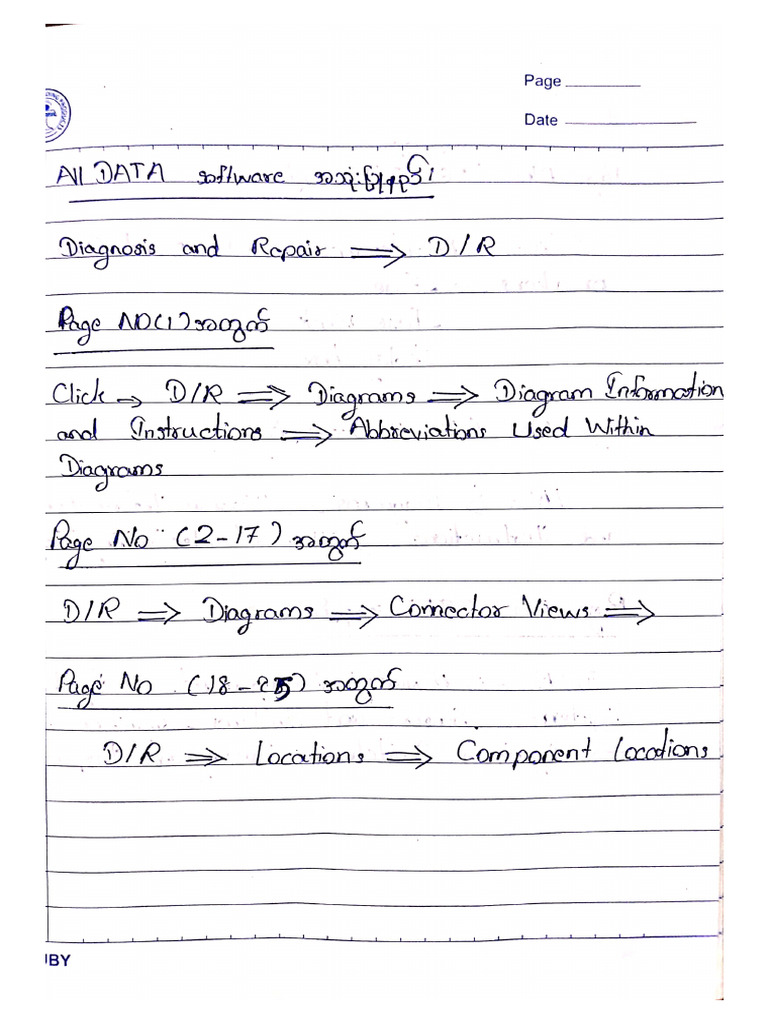 Page
Date
All DATA software အသုံးပြုနည်း
Diagnosis and Repair ⟹ D/R
Page No(1) အတွက်
Click → D/R ⟹ Diagrams ⟹ Diagram Information
and Instructions ⟹ Abbreviations Used Within
Diagrams
Page No (2-17) အတွက်
D/R ⟹ Diagrams ⟹ Connector Views ⟹
Page No (18-25) အတွက်
D/R ⟹ Locations ⟹ Component Locations
UBY